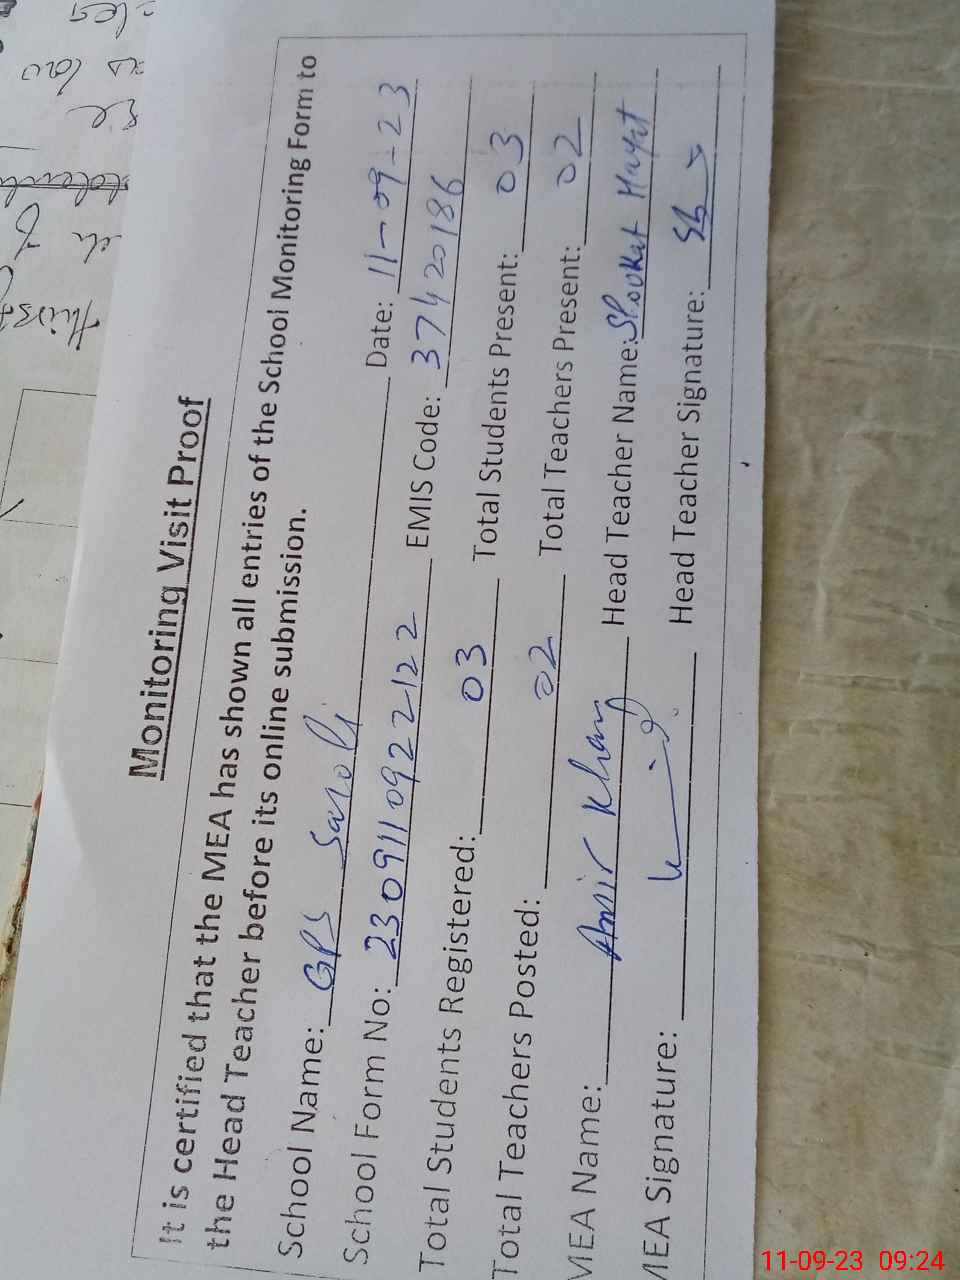 Monitoring Visit Proof
It is certified that the MEA has shown all entries of the School Monitoring Form to
the Head Teacher before its online submission.
School Name: GPS Saroli Date: 11-09-23
School Form No: 230911092212 2 EMIS Code: 37420186
Total Students Registered: 03 Total Students Present: 03
Total Teachers Posted: 02 Total Teachers Present: 02
MEA Name: Amir Khan Head Teacher Name: Shoukat Hayat
MEA Signature: Head Teacher Signature:
11-09-23 09:24